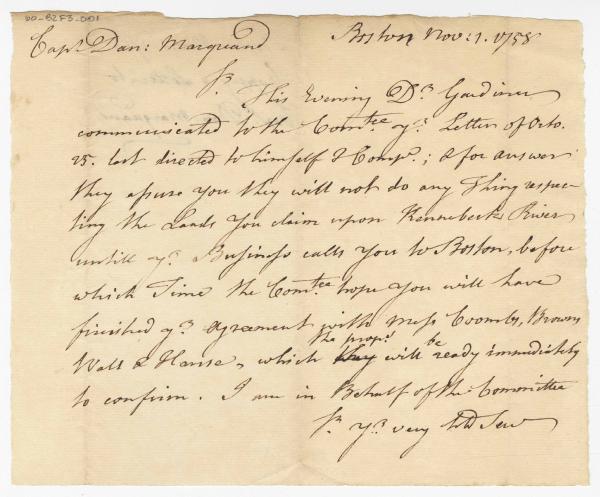 00-82F3-001
Capt. Dan: Marquand
Boston Nov: 1. 1758
Sr.
This Evening Dr. Gardiner
communicated to the Comtee yr. Letter of Octo.
25. last directed to himself & Compa.; & for answer
they assure you they will not do any Thing respec-
ting the Lands you claim upon Kennebeck River
untill yr. Business calls you to Boston, before
which Time the Comtee hope you will have
finished yr. agreement with Mess Coombs, Brown,
Wall & Hanse, which the propr. they will be ready immediately
to confirm. I am in Behalf of the Committee
Sr. yr. very hble Serv